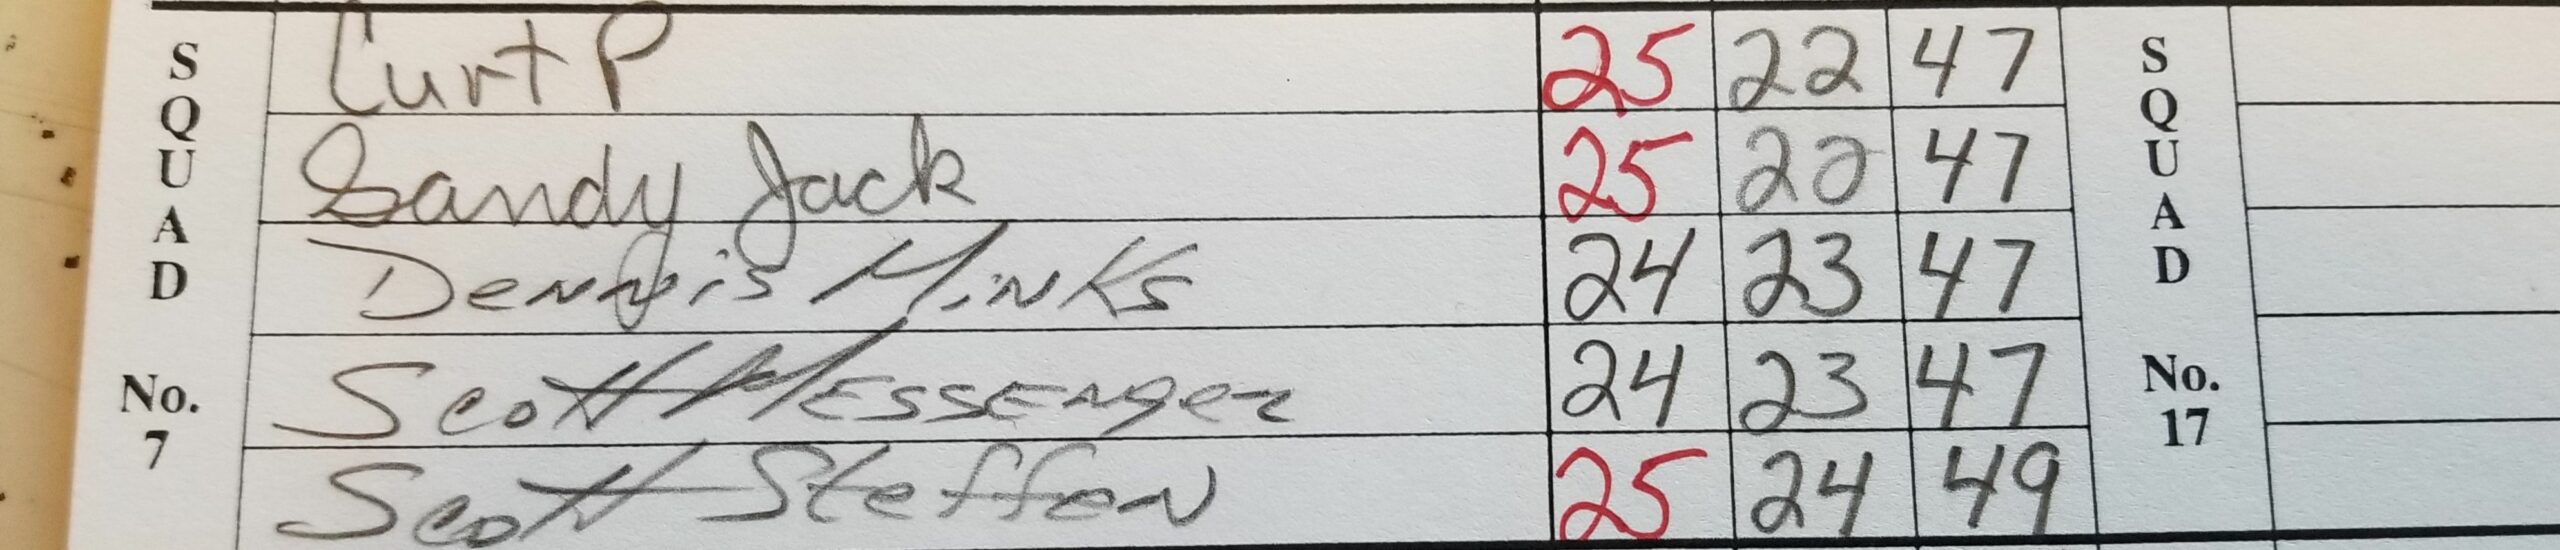 SQUAD No. 7
Curt P 25 22 47
Sandy Jack 25 20 47
Dennis Minks 24 23 47
Scott Messenger 24 23 47
Scott Steffen 25 24 49
SQUAD No. 17